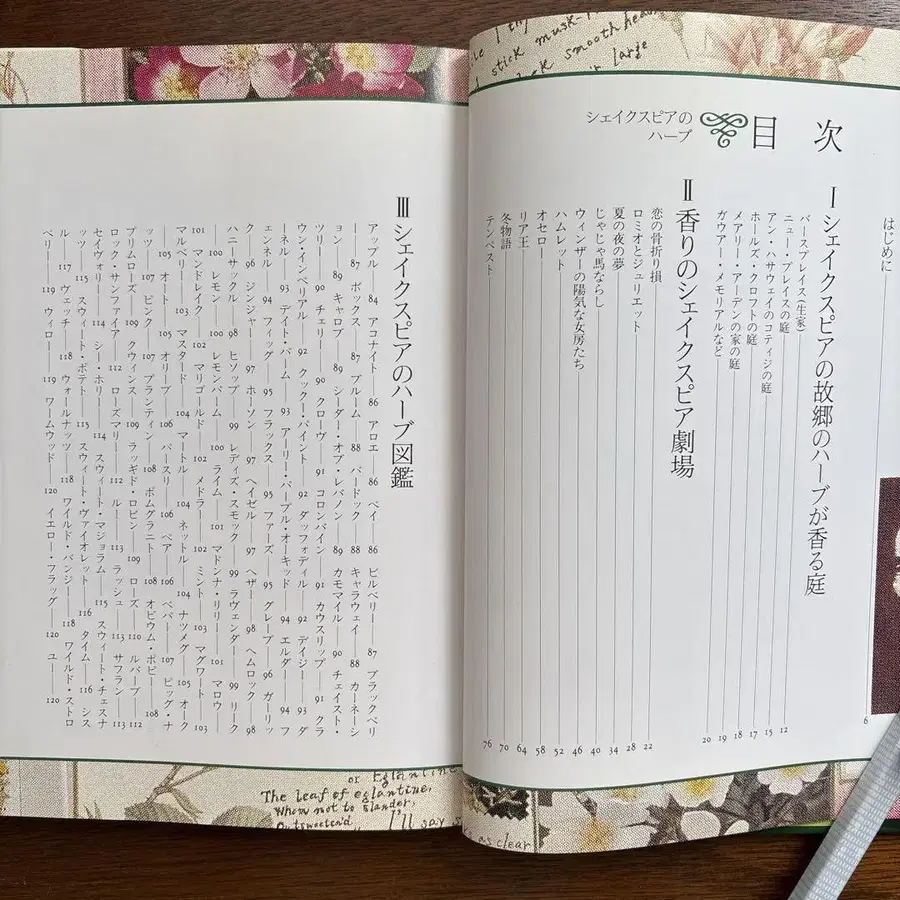 目次
シェイクスピアの
ハーブ
はじめに 6
Ⅰ シェイクスピアの故郷のハーブが香る庭
バースプレイス(生家) 12
ニュー・プレイスの庭 15
アン・ハサウェイのコティジの庭 17
ホールズ・クロフトの庭 18
メアリー・アーデンの家の庭 19
ガウアー・メモリアルなど 20
Ⅱ 香りのシェイクスピア劇場
恋の骨折り損 22
ロミオとジュリエット 28
夏の夜の夢 34
じゃじゃ馬ならし 40
ウィンザーの陽気な女房たち 46
ハムレット 52
オセロー 58
リア王 64
冬物語 70
テンペスト 76
Ⅲ シェイクスピアのハーブ図鑑
アップル 84 アコナイト 86 アロエ 86 ベイ 86 ビルベリー 87 ブラックベリ
ー 87 ボックス 87 ブルーム 88 バードック 88 キャラウェイ 88 カーネーシ
ョン 89 キャロブ 89 シーダー・オブ・レバノン 89 カモマイル 90 チェイスト・
ツリー 90 チェリー 91 クローヴ 91 コロンバイン 91 カウスリップ 91 クラ
ウン・インペリアル 92 クックー・パイント 92 ダッフォディル 92 デイジー 93 ダ
ーネル 93 デイト・パーム 93 アーリー・パープル・オーキッド 94 エルダー 94 フ
ェンネル 94 フィッグ 95 フラックス 95 ファーズ 95 グレープ 96 ガーリッ
ク 96 ジンジャー 97 ホーソン 97 ヘイゼル 97 ヘザー 98 ヘムロック 98
ハニーサックル 98 ヒソップ 99 レディズ・スモック 99 ラヴェンダー 99 リーク
100 レモン 100 レモンバーム 100 ライム 101 マドンナ・リリー 101 マロウ
101 マンドレイク 102 マリゴールド 102 メドラー 102 ミント 103 マグワート 103
マルベリー 103 マスタード 104 マートル 104 ネットル 104 ナツメグ 104 オーク
105 オート 105 オリーブ 106 パースリ 106 ペア 106 ペパー 107 ピッグ・ナ
ッツ 107 ピンク 107 プランティン 108 ポムグラニト 108 オピウム・ポピー 108
プリムローズ 109 クウィンス 109 ラッギド・ロビン 109 ローズ 110 ルバーブ 112
ロック・サンファイア 112 ローズマリー 112 ルー 113 ラッシュ 113 サフラン 113
セイヴォリー 114 シー・ホリー 114 スウィート・マジョラム 115 スウィート・チェスナ
ッツ 115 スウィート・ポテト 115 スウィート・ヴァイオレット 116 タイム 116 シス
ル 117 ヴェッチ 118 ウォールナッツ 118 ワイルド・パンジー 118 ワイルド・ストロ
ベリー 119 ウィロー 119 ワームウッド 120 イエロー・フラッグ 120 ユー 120
stick musk-
smooth
large
or Eglantine
The leaf of eglantine,
Whom not to slander,
Outsweeten'd
I'll say
as clear